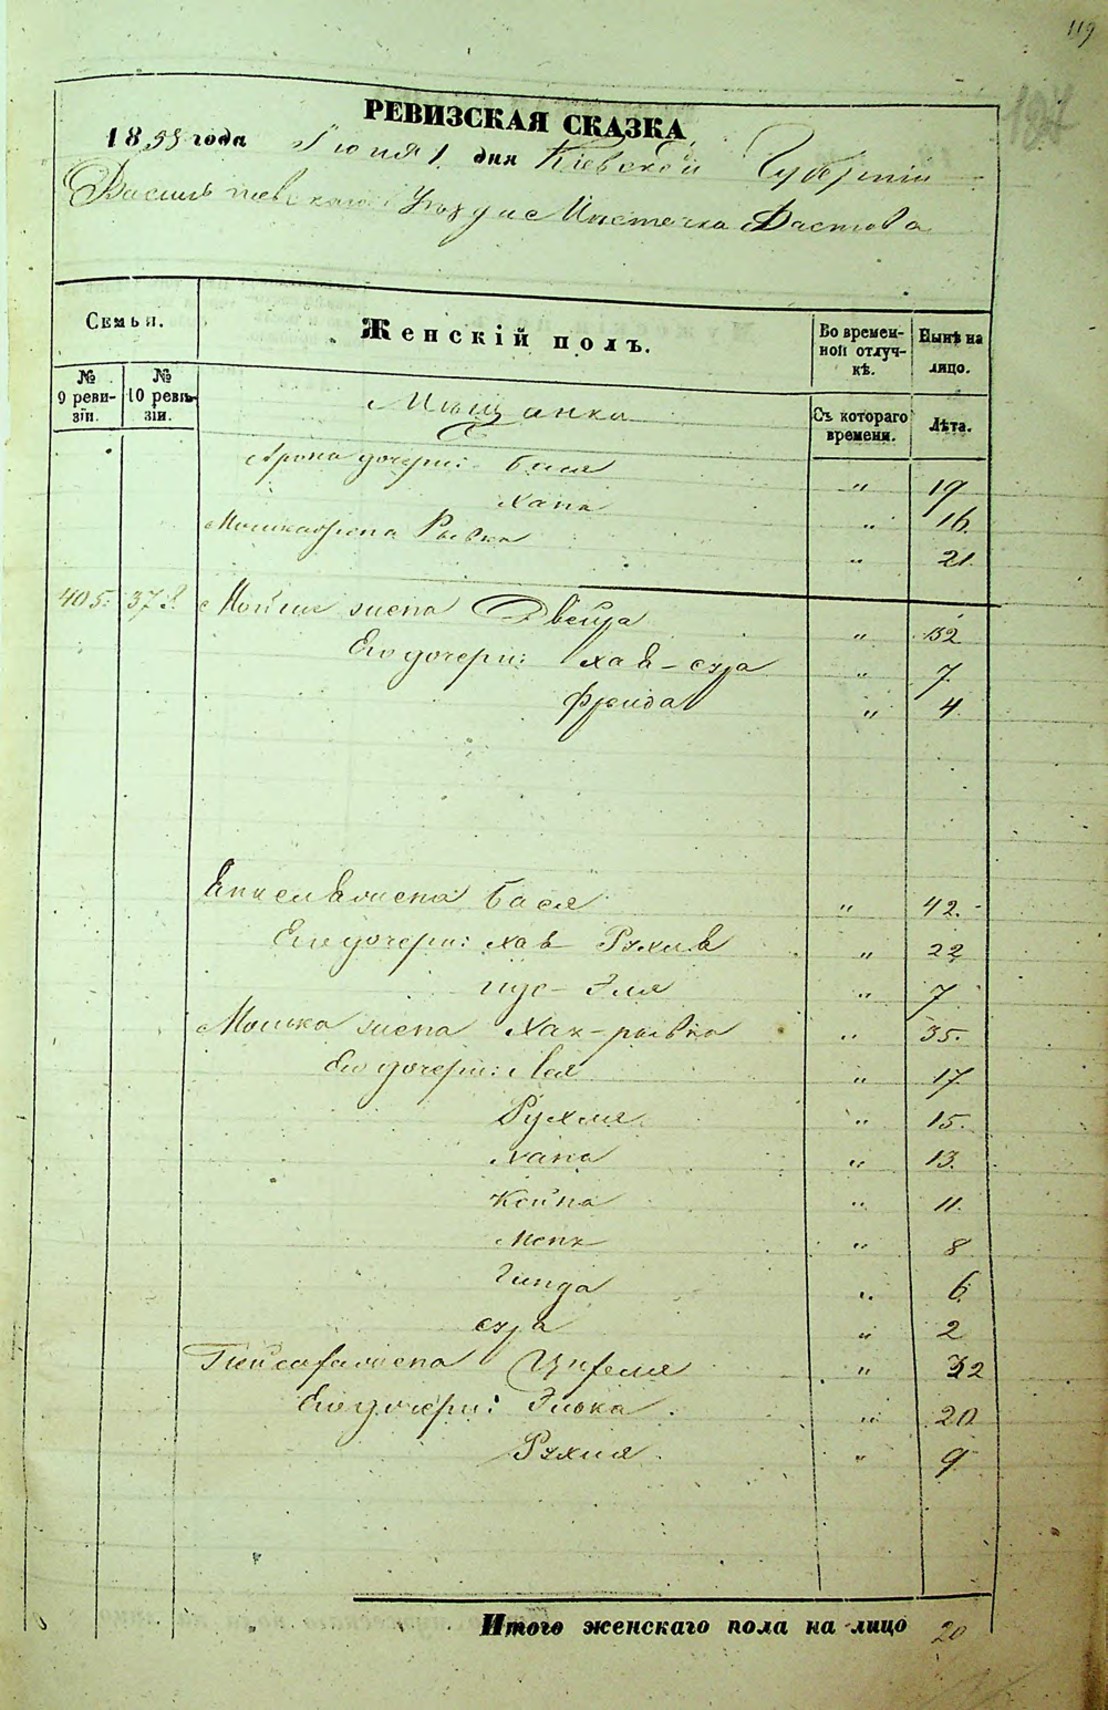 119
РЕВИЗСКАЯ СКАЗКА
1858 года Іюня 1 дня Кіевской Губерніи
Васильковскаго Уезда Местечка Фастова
Семьи.
Женскій полъ.
Во времен-
ной отлуч-
кѣ.
Нынѣ на
лицо.
№
9 реви-
зіи.
№
10 реви-
зіи.
Мещанки
Съ котораго
времени.
Лѣта.
Арона дочери: Бася " 19
Хана " 16.
Мошка жена Рывка " 21.
405. Мойше жена Двейра " 32
Его дочери: Хав-сура " 7
Фрейда " 4.
жена Бася " 42.
Его дочери: Хав " 22
" 7
Мошка жена Хая-рывка " 35.
Его дочери: Лея " 17
Рухля " 15.
Хана " 13.
Кейла " 11.
" 8
Гинда " 6.
сура " 2
жена " 32
Его дочери: Элька " 20
Рухля " 9
Итого женскаго пола на лицо 20